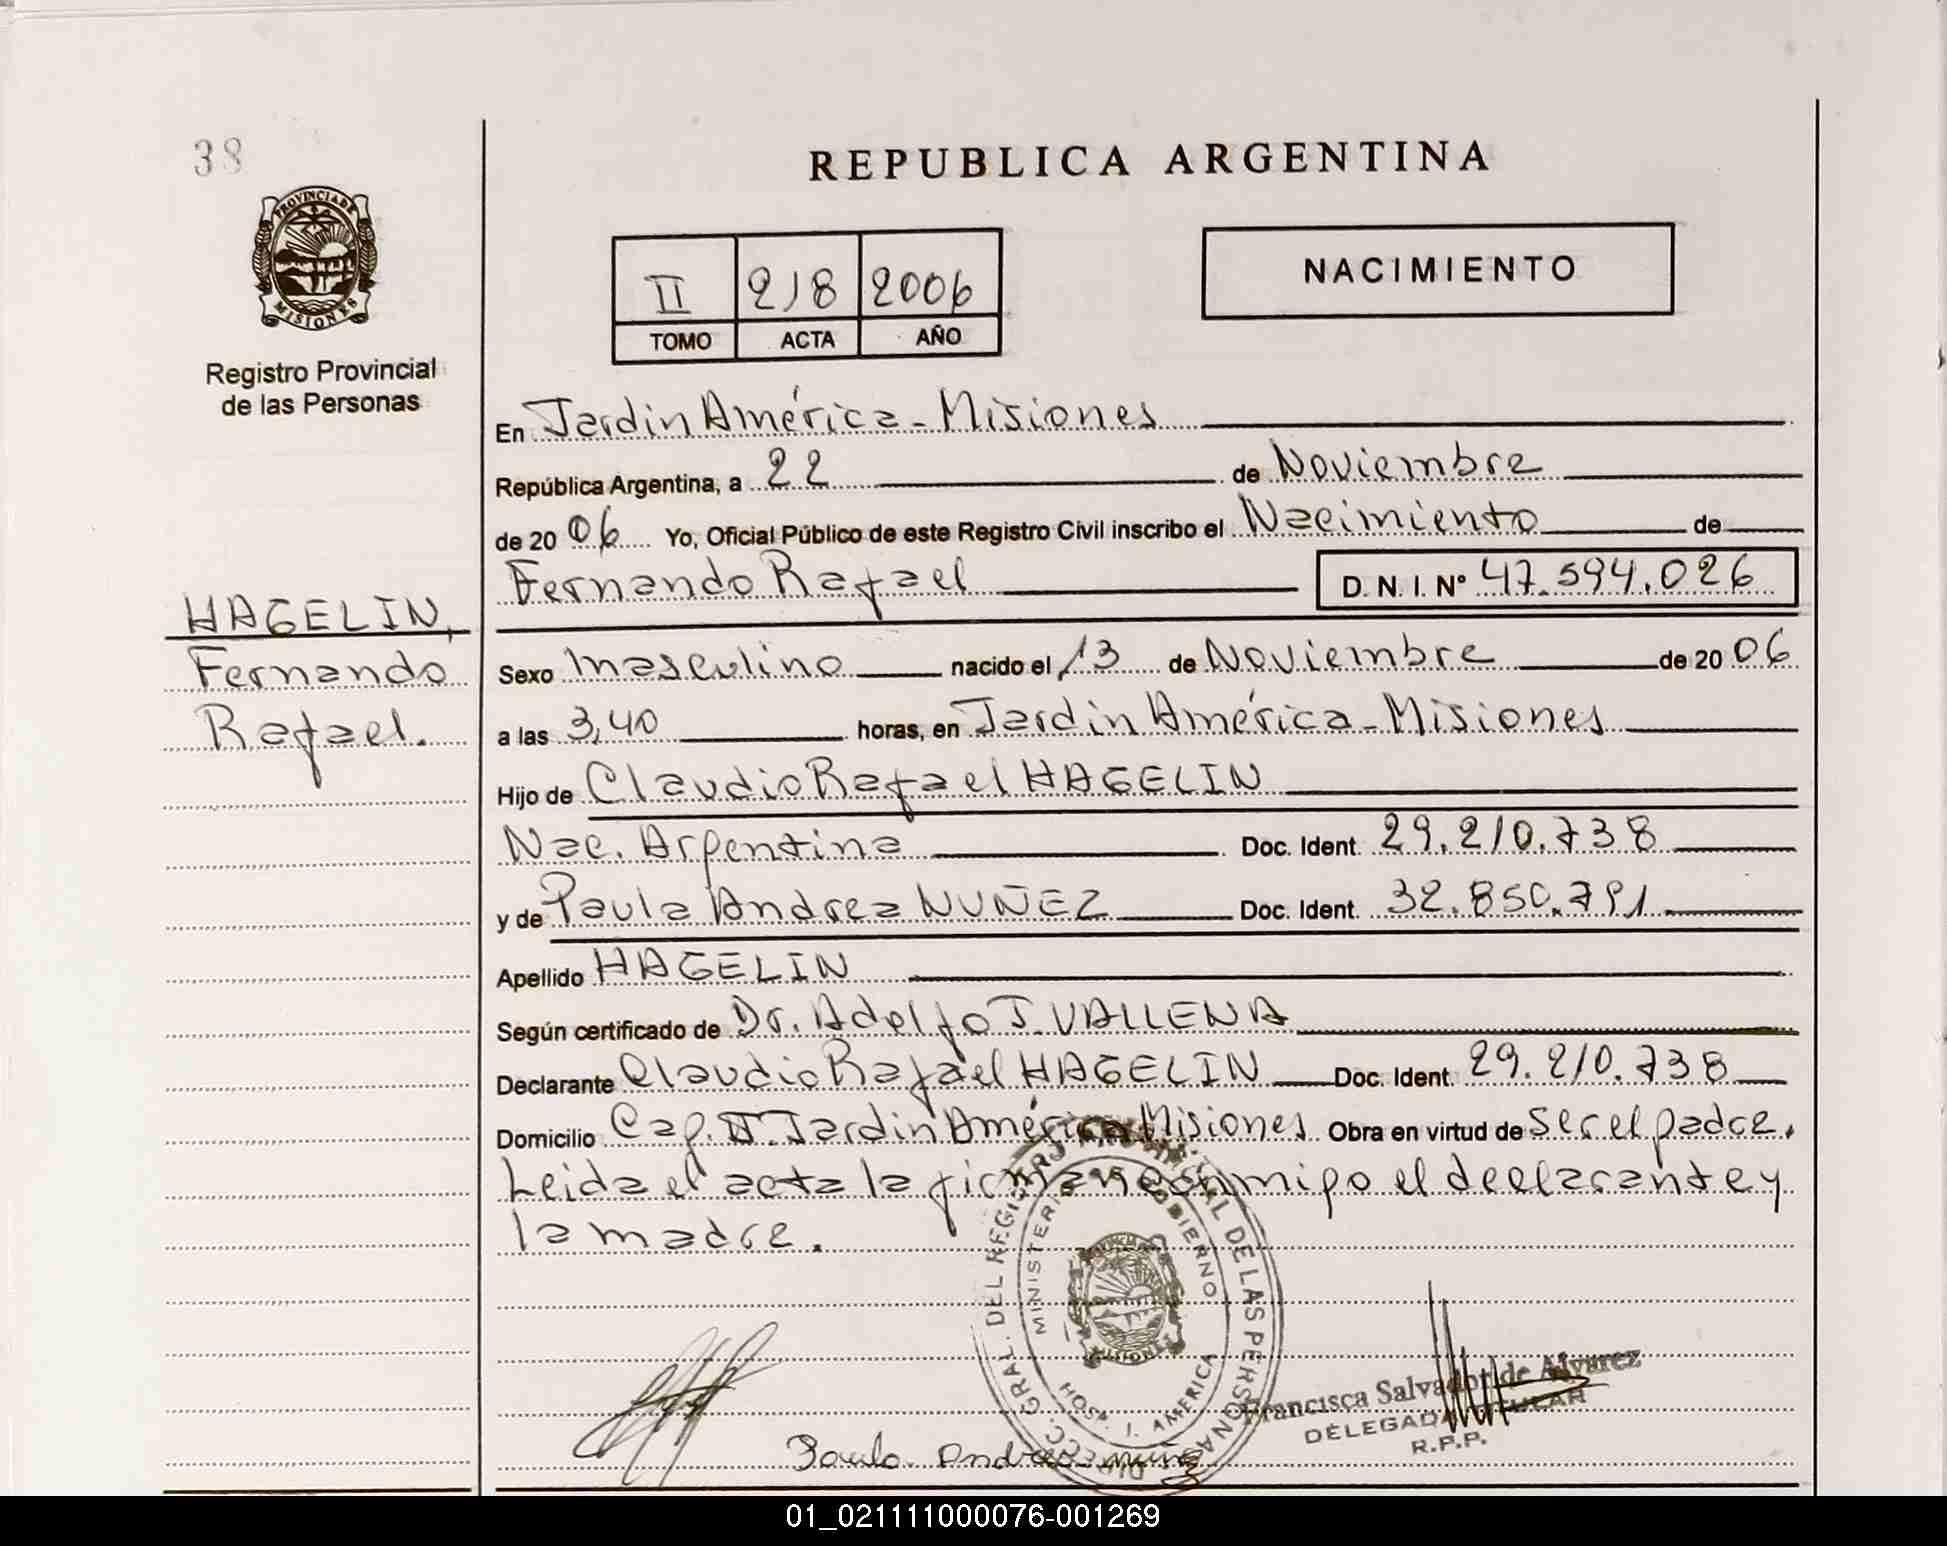 38
PROVINCIA DE
MISIONES
Registro Provincial
de las Personas
HAGELIN,
Fernando
Rafael.
REPUBLICA ARGENTINA
II 218 2006
TOMO ACTA AÑO
NACIMIENTO
En Jardin América - Misiones
República Argentina, a 22 de Noviembre
de 20 06 Yo, Oficial Público de este Registro Civil inscribo el Nacimiento de
Fernando Rafael D. N. I. Nº 47.594.026
Sexo masculino nacido el 13 de Noviembre de 20 06
a las 3,40 horas, en Jardin América - Misiones
Hijo de Claudio Rafael HAGELIN
Nac. Argentina Doc. Ident. 29.210.738
y de Paula Andrea NUÑEZ Doc. Ident. 32.850.791
Apellido HAGELIN
Según certificado de Dr. Adolfo J. VALLENA
Declarante Claudio Rafael HAGELIN Doc. Ident. 29.210.738
Domicilio Cap. II. Jardin América Misiones Obra en virtud de ser el padre.
Leida el acta la firman conmigo el declarante y
la madre.
DIRECC. GRAL. DEL REGISTRO PROVINCIAL DE LAS PERSONAS
MINISTERIO DE GOBIERNO
MISIONES
HOSP. J. AMERICA
Francisca Salvador de Alvarez
DELEGADA TITULAR
R.P.P.
Paula Andrea
01_021111000076-001269